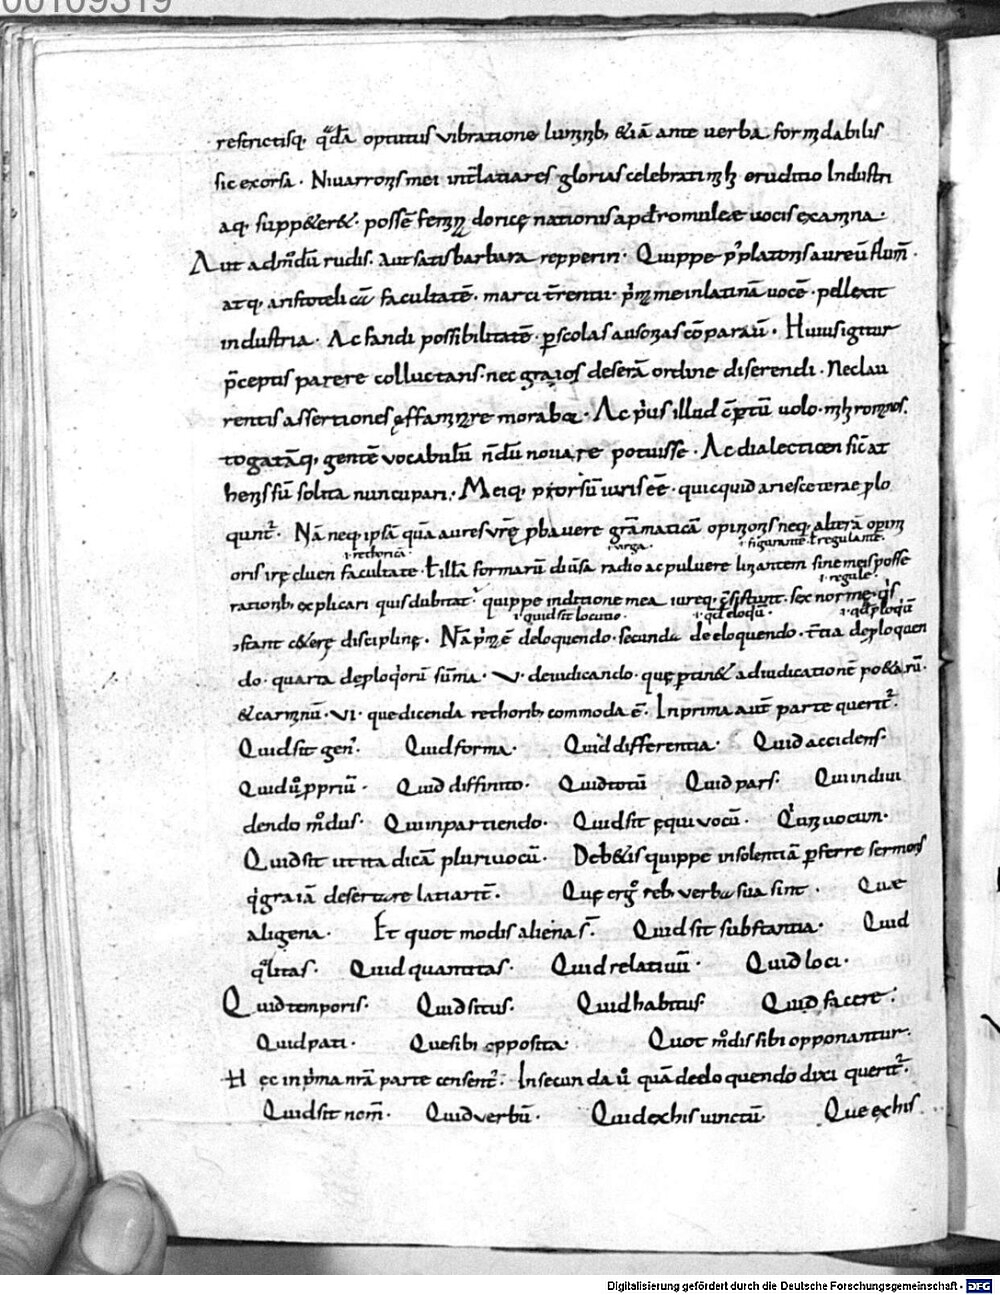 00109319
restrictisq; qdā optutus vibratione luminib; &iā ante uerba formidabilis
sic exorsa · Ni uarronis mei int̄ latiares glorias celebrati mihi eruditio Industri
aq; supp&er&· possē femin dorice nationis ap̄d romuleae uocis examina·
Aut admodū rudis. Aut satis barbara repperiri· Quippe p' platonis aureū flum̄·
atq; aristotelicā facultatē· marci t̄rentii· prim me in latinā uocē· pellexit
industria· Ac fandi possibilitatē· p̄ scolas ausonias cōparauit· Huius igitur
p̄ceptis parere colluctans· nec graios deserā ordine diserendi· Nec lau
rentis assertiones effamine morabor· Ac p'us illud
togatāq; gentē vocabulū n̄dū nouare potuisse· Ac dialecticen sic at
henis sū solita nuncupari· Meiq; prorsū iuris ēē· quicquid artes ceterae p̄lo
qunt'· Nā neq; ipsā quā aures vr̄e p̄bauere grāmaticā opinonis neq; alterā opim
·i· rethorica· ·i· uirga· ·i· figurante ł regulante·
oris ire cluen facultate· t illā formarū diu'sa radio ac puluere linantem sine meis posse
·i· regule·
rationib; explicari quis dubitat· quippe in ditione mea iureq; sex norme· q's
·i· quid sit locutio· ·i· qd eloqū· ·i· qd ploqū
ɔstant c&ere discipline· Nā prim ē de loquendo· secunda de eloquendo· t̄cia de ploquen
do· quarta de ploq'orū sūma· V· de iudicando· que p̄tin& ad iudicationē po&arū·
& carminū· VI· que dicenda rethorib; commoda ē· In prima aut̄ parte querit'·
Quid sit gen'· Quid forma· Quid differentia· Quid accidens·
Quid u' p̄priū· Quid diffinitio· Quid totū Quid pars· Qui in diui
dendo modus· Qui in partiendo· Quid sit equiuocū· Q'd uniuocun·
Quid sit ut ita dicā pluriuocū· Deb&is quippe insolentiā p̄ferre sermonis
q'i graiā disertare latiarit̄· Que ergo reb; verba sua sint· Quae
aligena· Et quot modis aliena s̄· Quid sit substantia· Quid
q'litas· Quid quantitas· Quid relatiuū· Quid loci·
Quid temporis· Quid situs· Quid habitus· Quid facere·
Quid pati· Que sibi opposita· Quot modis sibi opponantur·
Hec in p'ma nr̄a parte censent'· In secunda u' quā de eloquendo dixi querit'·
Quid sit nom̄· Quid verbū· Quid ex his iunctū· Que ex his·
Digitalisierung gefördert durch die Deutsche Forschungsgemeinschaft - DFG